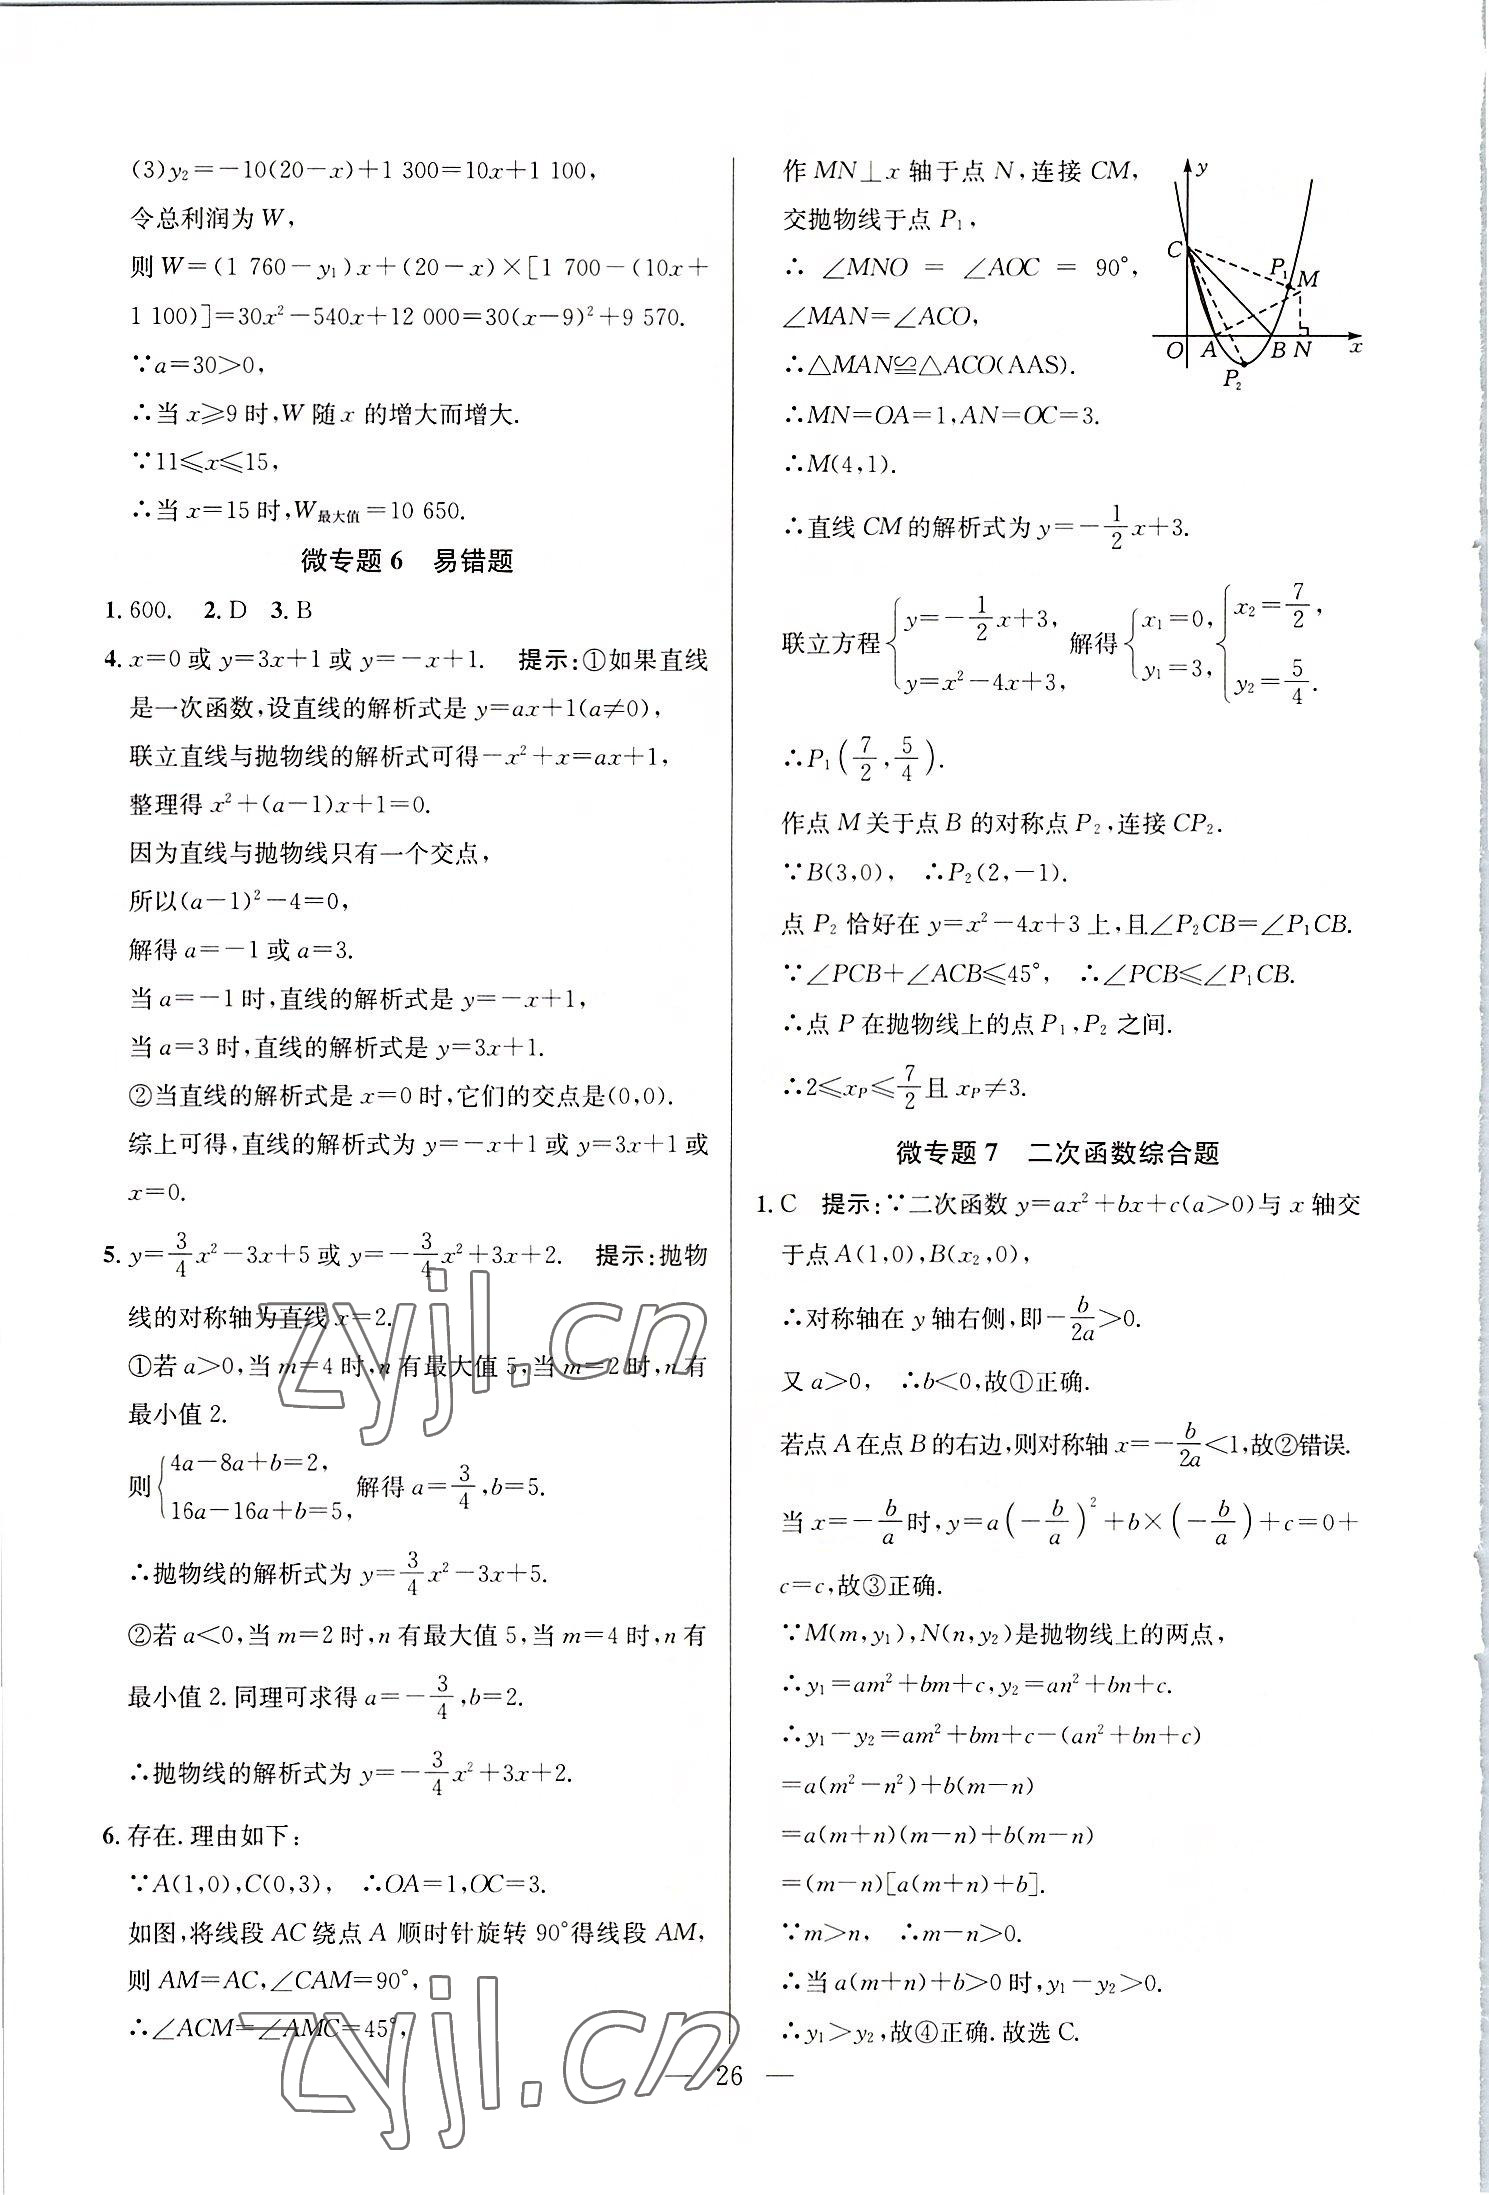 (3)y₂=-10(20-x)+1 300=10x+1 100,
令总利润为 W,
则 W=(1 760-y₁)x+(20-x)×[1 700-(10x+
1 100)]=30x²-540x+12 000=30(x-9)²+9 570.
∵a=30>0,
∴当 x≥9 时,W 随 x 的增大而增大.
∵11≤x≤15,
∴当 x=15 时,W最大值=10 650.
微专题 6 易错题
1.600. 2.D 3.B
4.x=0 或 y=3x+1 或 y=-x+1. 提示:①如果直线
是一次函数,设直线的解析式是 y=ax+1(a≠0),
联立直线与抛物线的解析式可得-x²+x=ax+1,
整理得 x²+(a-1)x+1=0.
因为直线与抛物线只有一个交点,
所以(a-1)²-4=0,
解得 a=-1 或 a=3.
当 a=-1 时,直线的解析式是 y=-x+1,
当 a=3 时,直线的解析式是 y=3x+1.
②当直线的解析式是 x=0 时,它们的交点是(0,0).
综上可得,直线的解析式为 y=-x+1 或 y=3x+1 或
x=0.
5.y=3/4x²-3x+5 或 y=-3/4x²+3x+2. 提示:抛物
线的对称轴为直线 x=2.
①若 a>0,当 m=4 时,n 有最大值 5,当 m=2 时,n 有
最小值 2.
则{4a-8a+b=2, 16a-16a+b=5, 解得 a=3/4,b=5.
∴抛物线的解析式为 y=3/4x²-3x+5.
②若 a<0,当 m=2 时,n 有最大值 5,当 m=4 时,n 有
最小值 2.同理可求得 a=-3/4,b=2.
∴抛物线的解析式为 y=-3/4x²+3x+2.
6.存在.理由如下:
∵A(1,0),C(0,3), ∴OA=1,OC=3.
如图,将线段 AC 绕点 A 顺时针旋转 90°得线段 AM,
则 AM=AC,∠CAM=90°,
∴∠ACM=∠AMC=45°,
作 MN⊥x 轴于点 N,连接 CM,
交抛物线于点 P₁,
∴∠MNO=∠AOC=90°,
∠MAN=∠ACO,
∴△MAN≌△ACO(AAS).
∴MN=OA=1,AN=OC=3.
∴M(4,1).
y
C
P₁
M
O
A
B
N
x
P₂
∴直线 CM 的解析式为 y=-1/2x+3.
联立方程{y=-1/2x+3, y=x²-4x+3, 解得{x₁=0, y₁=3, {x₂=7/2, y₂=5/4.
∴P₁(7/2,5/4).
作点 M 关于点 B 的对称点 P₂,连接 CP₂.
∵B(3,0), ∴P₂(2,-1).
点 P₂ 恰好在 y=x²-4x+3 上,且∠P₂CB=∠P₁CB.
∵∠PCB+∠ACB≤45°, ∴∠PCB≤∠P₁CB.
∴点 P 在抛物线上的点 P₁,P₂ 之间.
∴2≤xP≤7/2且 xP≠3.
微专题 7 二次函数综合题
1.C 提示:∵二次函数 y=ax²+bx+c(a>0)与 x 轴交
于点 A(1,0),B(x₂,0),
∴对称轴在 y 轴右侧,即-b/2a>0.
又 a>0, ∴b<0,故①正确.
若点 A 在点 B 的右边,则对称轴 x=-b/2a<1,故②错误.
当 x=-b/a时,y=a(-b/a)²+b×(-b/a)+c=0+
c=c,故③正确.
∵M(m,y₁),N(n,y₂)是抛物线上的两点,
∴y₁=am²+bm+c,y₂=an²+bn+c.
∴y₁-y₂=am²+bm+c-(an²+bn+c)
=a(m²-n²)+b(m-n)
=a(m+n)(m-n)+b(m-n)
=(m-n)[a(m+n)+b].
∵m>n, ∴m-n>0.
∴当 a(m+n)+b>0 时,y₁-y₂>0.
∴y₁>y₂,故④正确.故选 C.
— 26 —
zyjl.cn
zyjl.cn